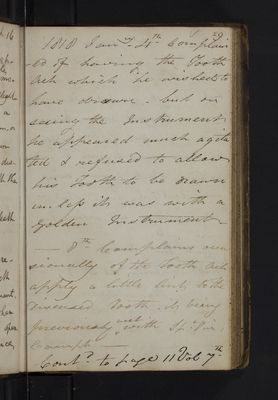 29
1818 Jany. 4th Complain
-ed of having the Tooth
Ach which he wished to
have drawn - but on
seeing the Instrument
he appeared much agita
ted & refused to allow
his Tooth to be drawn
unless it was with a
Golden Instrument
— 8th Complains occa
sionally of the Tooth Ach
apply a little lint to the
Diseased Tooth, it being
previously wet with Sp: Vin:
Camph —
Contd. to page 11 Vol 7th